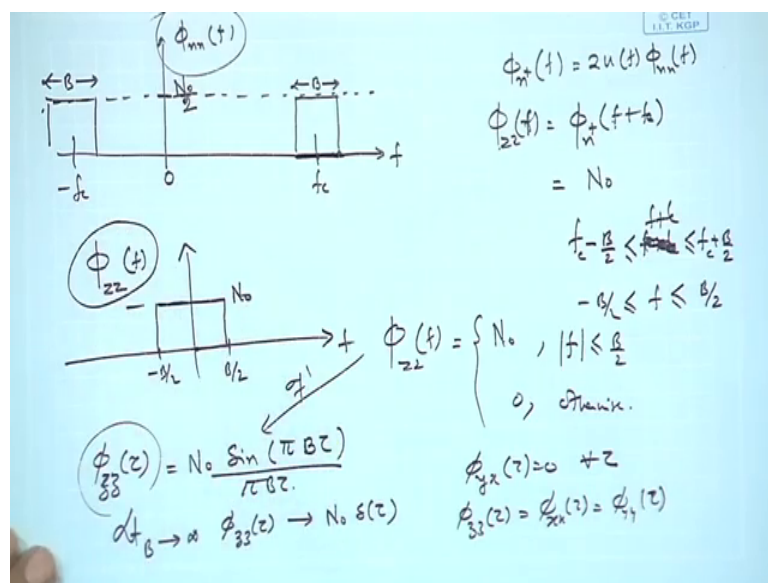 © CET
I.I.T. KGP
ϕ_nn(f)
← B →
N₀/2
← B →
-f_c
0
f_c
f
ϕ_n⁺(f) = 2u(f) ϕ_nn(f)
ϕ_zz(f) = ϕ_n⁺(f+f_c)
= N₀
f_c - B/2 ≤ f+f_c ≤ f_c + B/2
-B/2 ≤ f ≤ B/2
ϕ_zz(f)
N₀
-B/2
B/2
f
ϕ_zz(f) = { N₀ , |f| ≤ B/2
0, otherwise.
ϕ_zz(τ) = N₀ Sin(πBτ) / πBτ.
Lt B→∞ ϕ_zz(τ) → N₀ δ(τ)
ϕ_yx(τ)=0 ∀τ
ϕ_zz(τ) = ϕ_xx(τ) = ϕ_yy(τ)